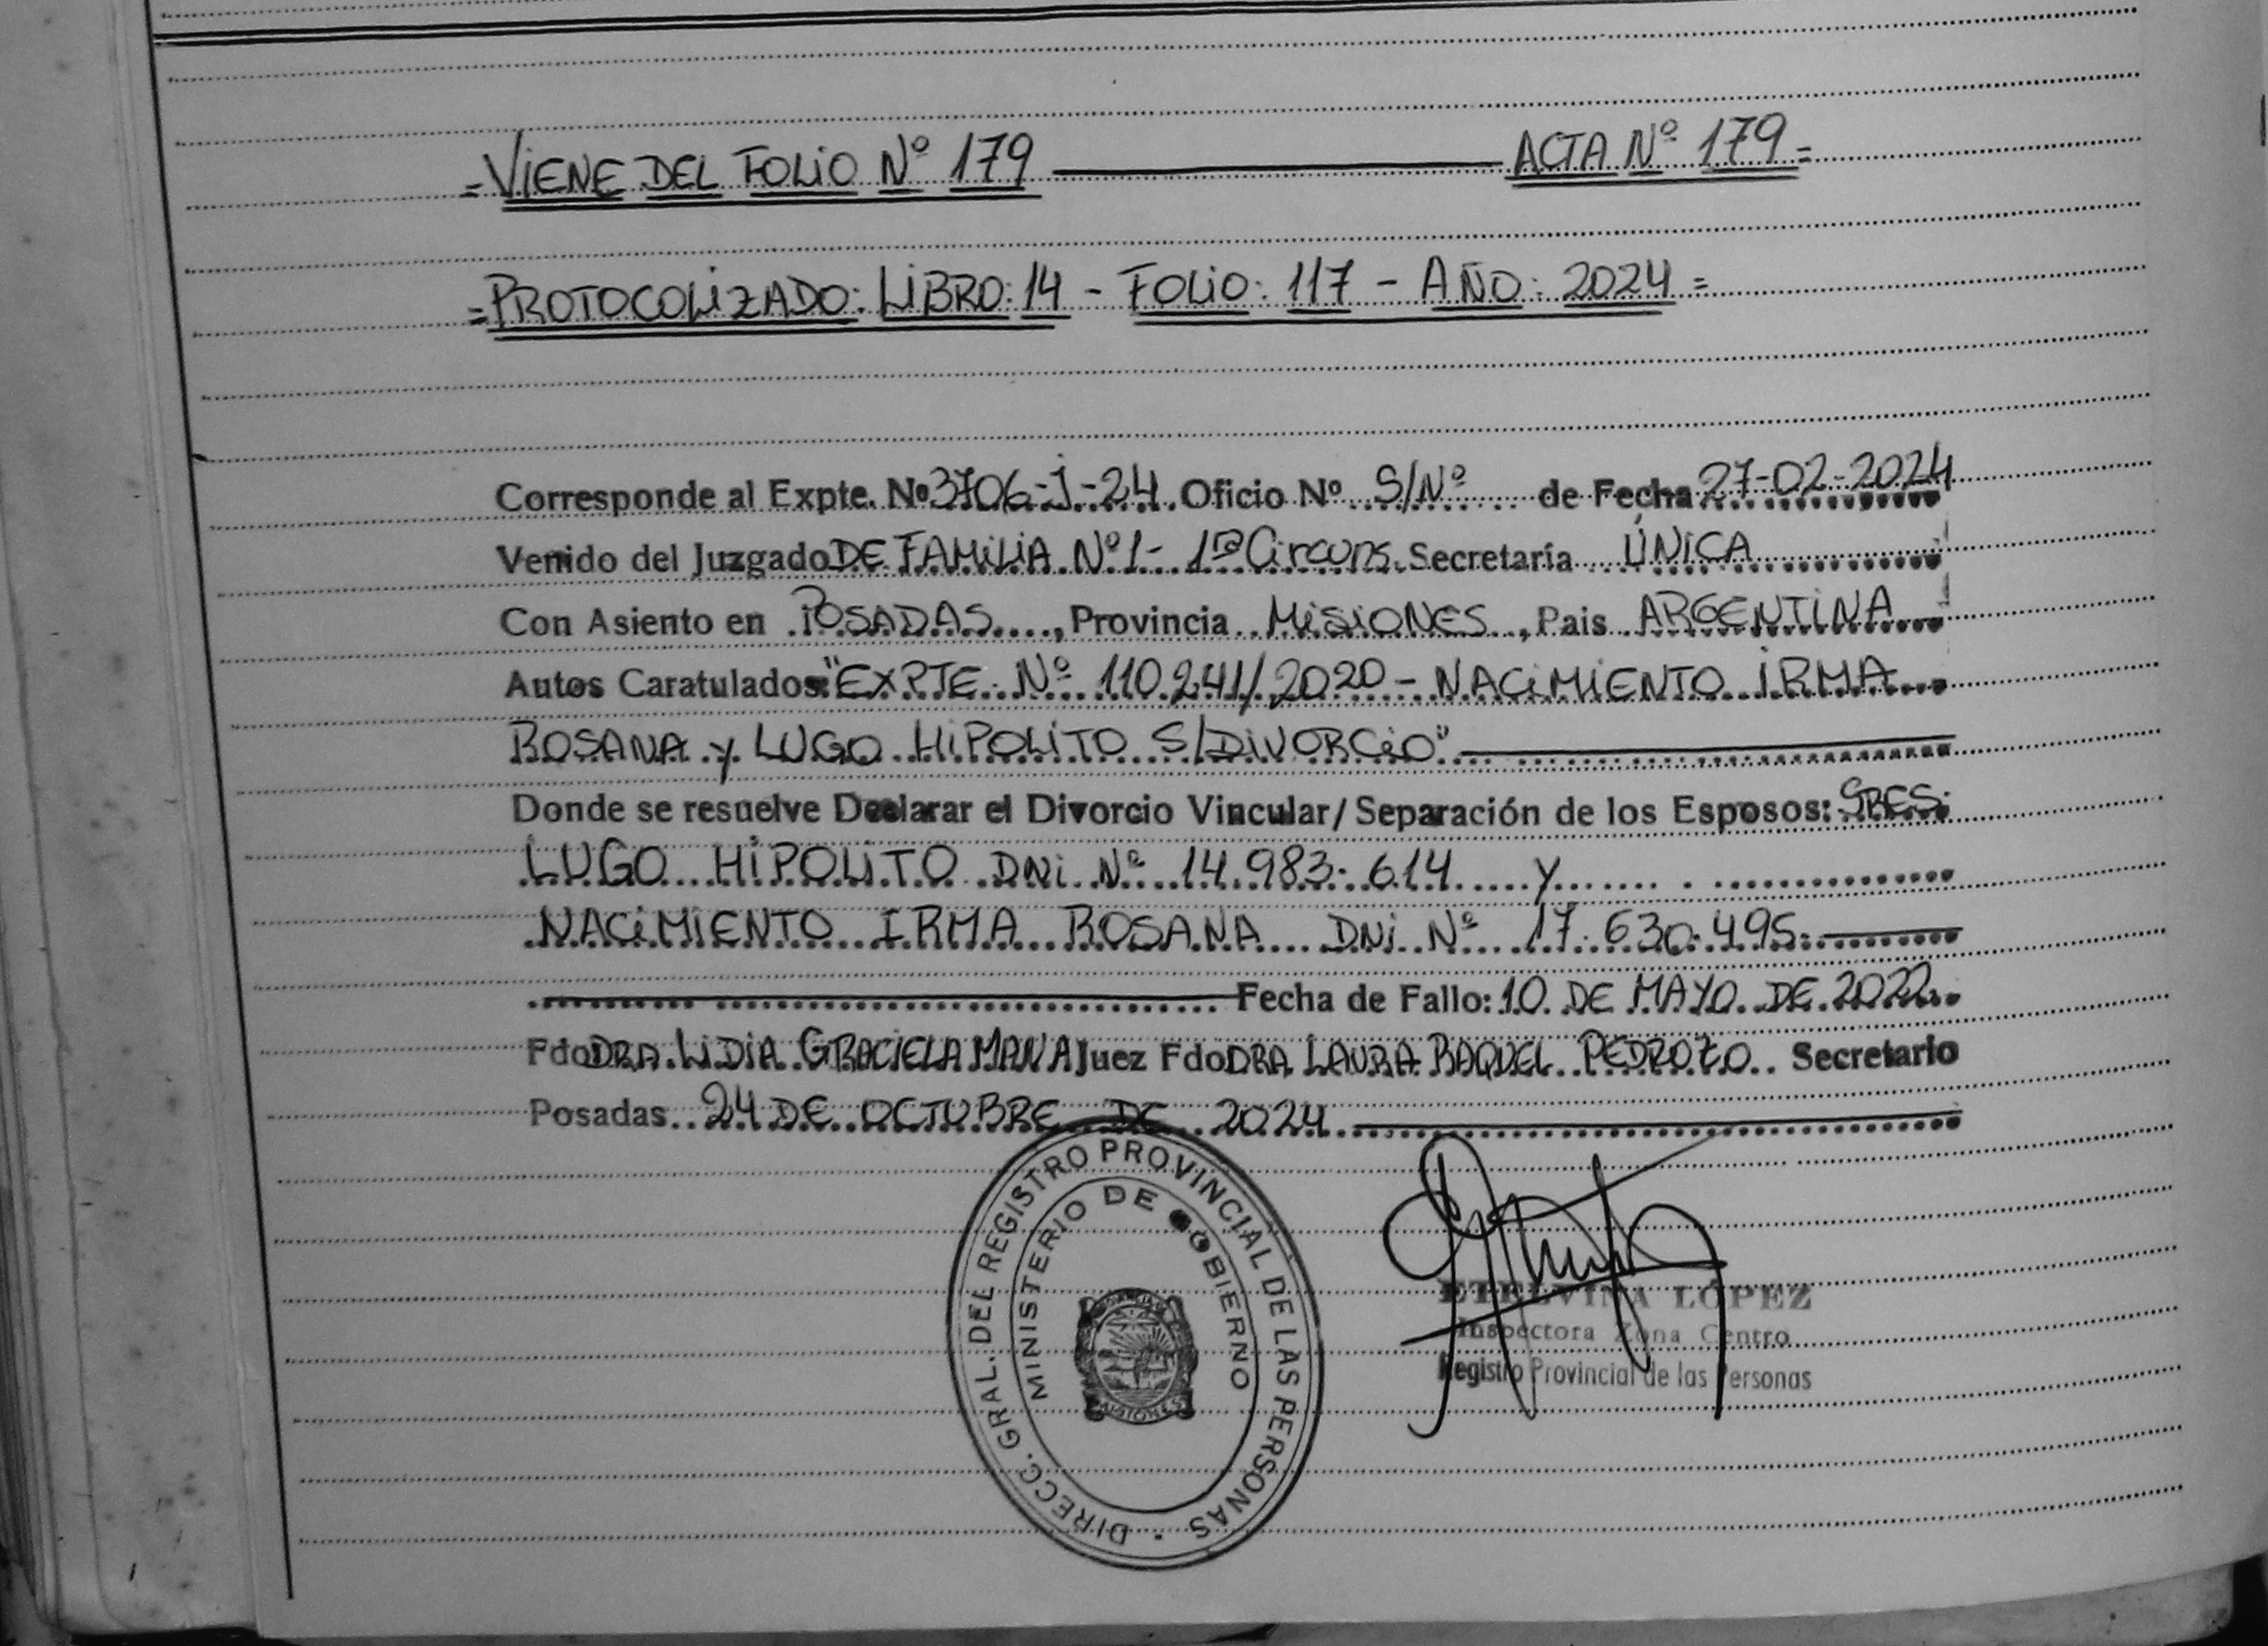 =VIENE DEL FOLIO Nº 179 ACTA Nº 179=
=PROTOCOLIZADO: LIBRO: 14 - FOLIO: 117 - AÑO: 2024=
Corresponde al Expte. Nº 3706-J-24. Oficio Nº S/Nº de Fecha 27-02-2024
Venido del Juzgado DE FAMILIA Nº1- 1ª Circuns. Secretaría ÚNICA
Con Asiento en POSADAS, Provincia MISIONES, Pais ARGENTINA
Autos Caratulados: "EXPTE Nº 110.241/2020 - NACIMIENTO IRMA
ROSANA y LUGO HIPOLITO S/DIVORCIO"
Donde se resuelve Declarar el Divorcio Vincular/Separación de los Esposos: SRES.
LUGO HIPOLITO DNI Nº 14.983.614 y
NACIMIENTO IRMA ROSANA DNI Nº 17.630.495.
Fecha de Fallo: 10 DE MAYO DE 2022.
Fdo DRA. LIDIA GRACIELA MANA Juez Fdo DRA LAURA RAQUEL PEDROZO. Secretario
Posadas 24 DE OCTUBRE DE 2024
DIRECC. GRAL. DEL REGISTRO PROVINCIAL DE LAS PERSONAS
MINISTERIO DE GOBIERNO
MISIONES
ETELVINA LÓPEZ
Inspectora Zona Centro
Registro Provincial de las Personas